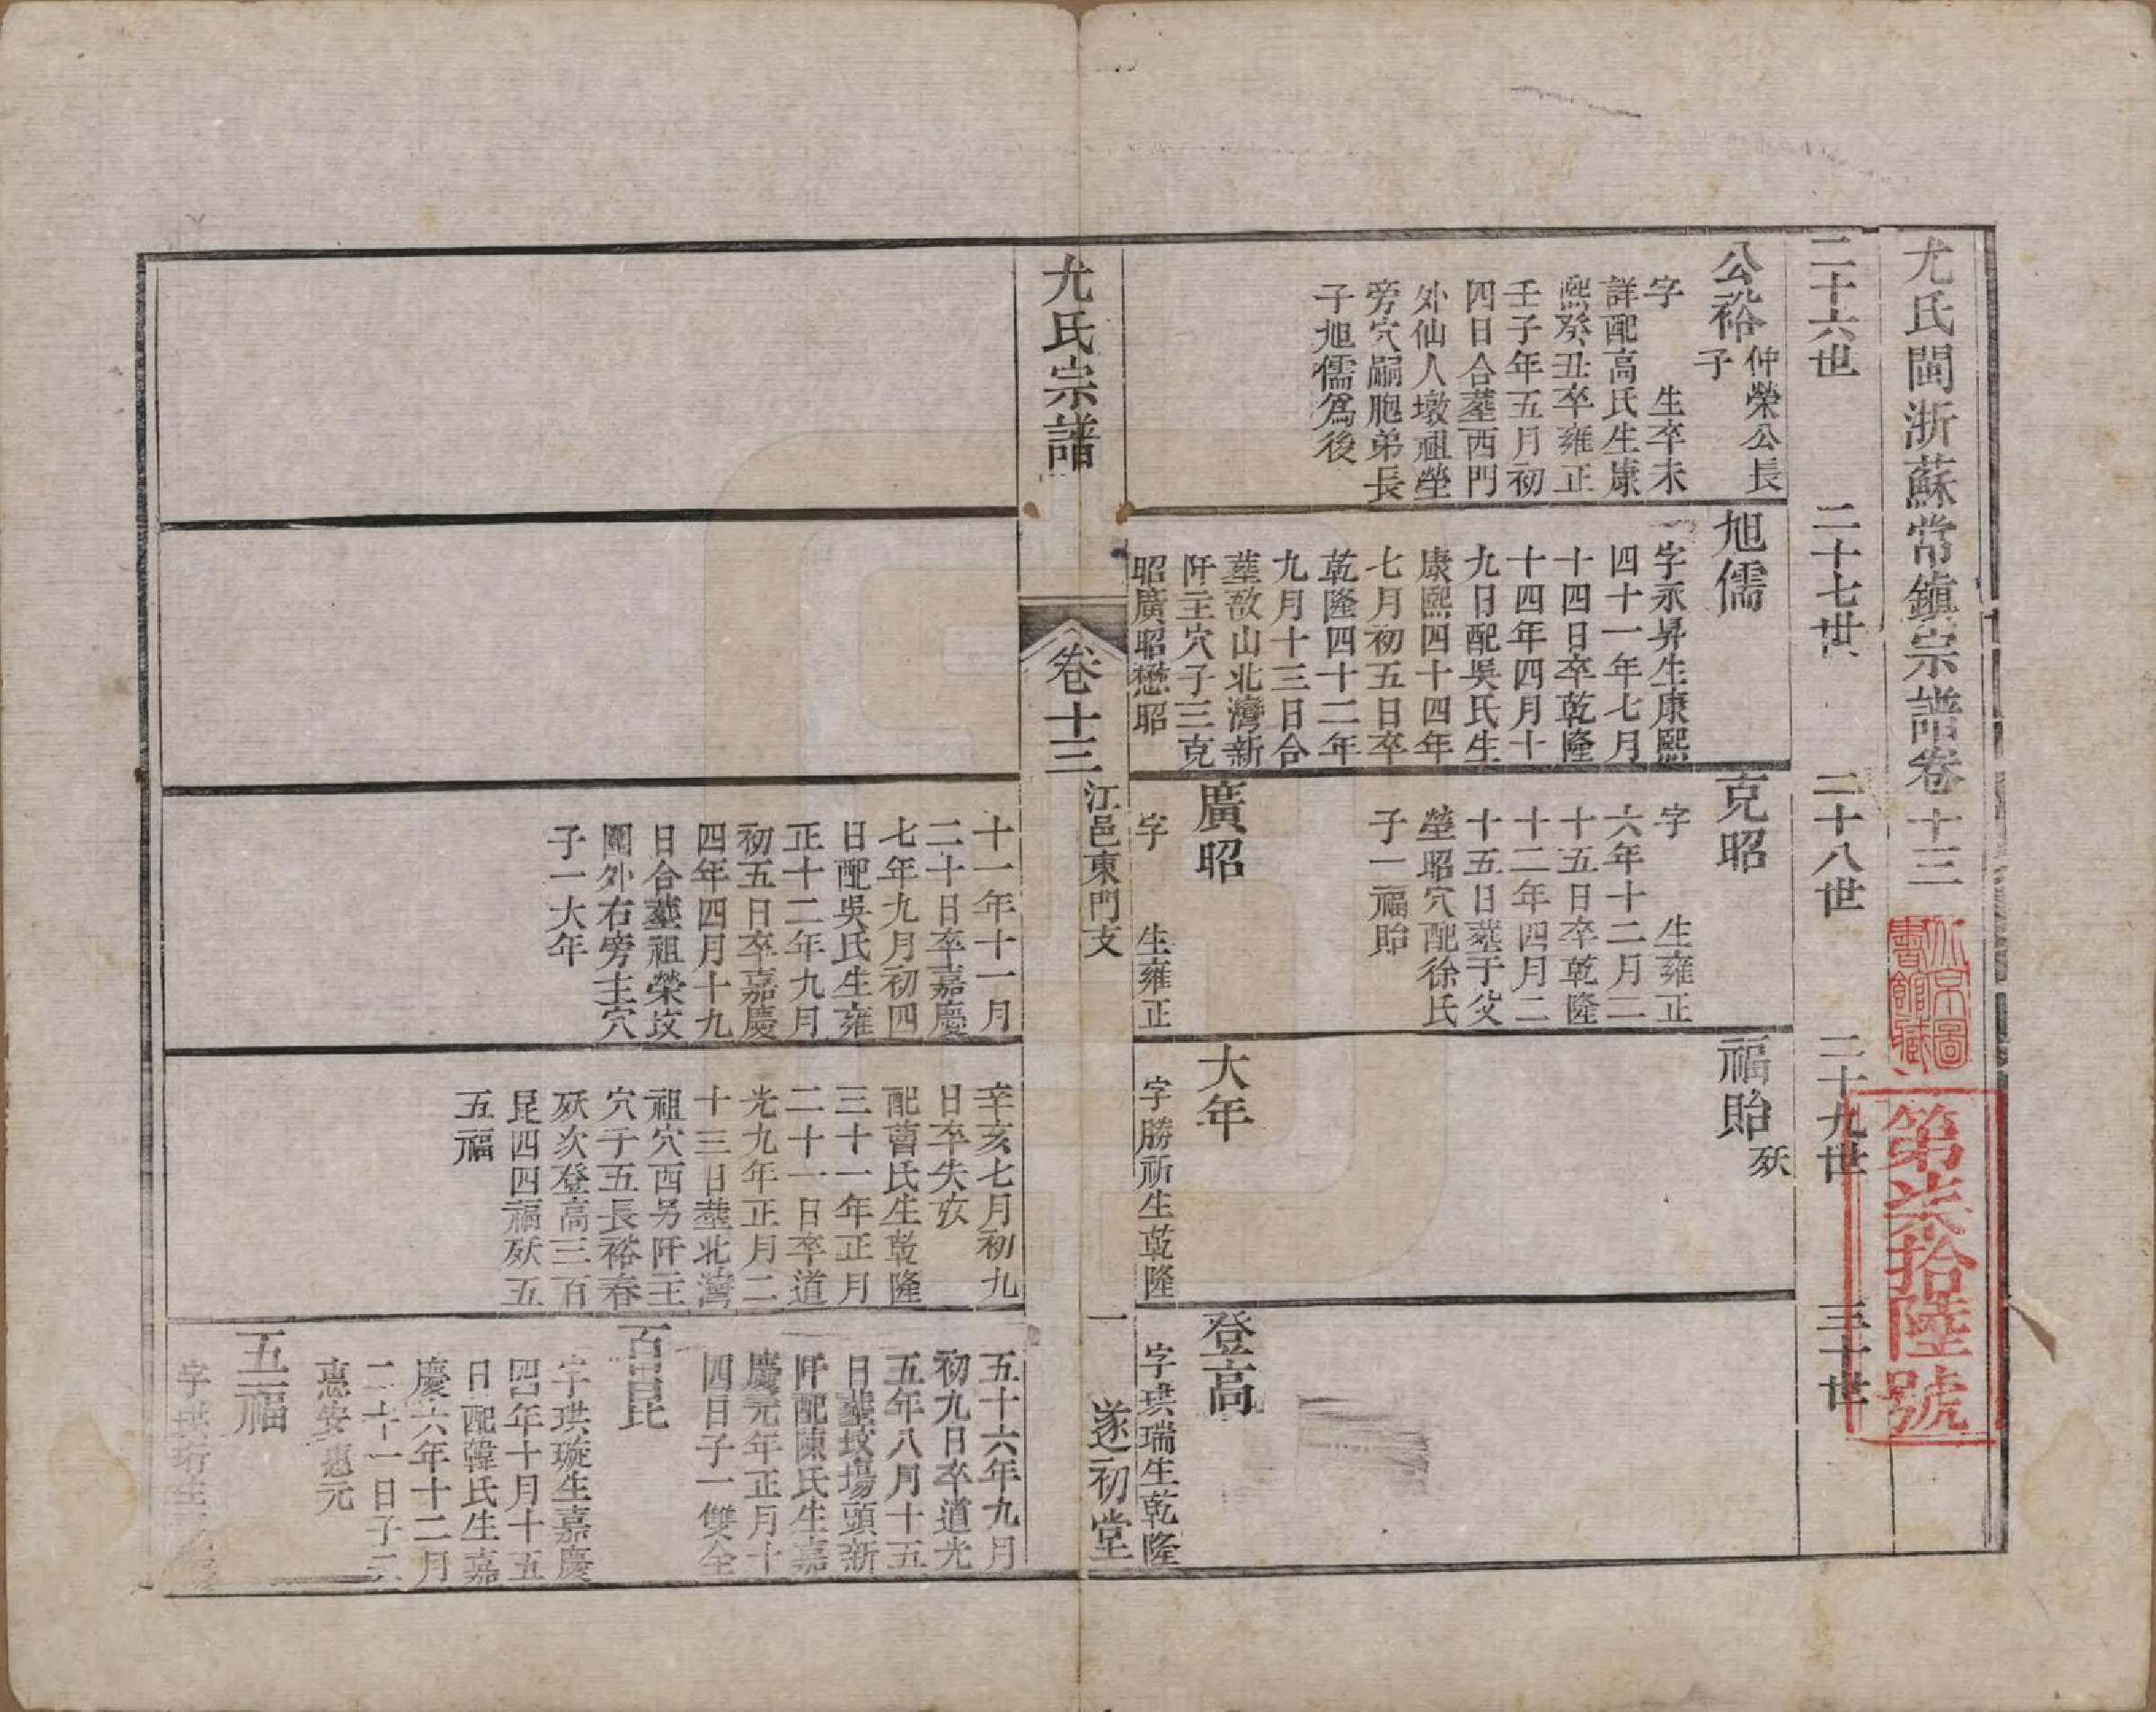 尤氏閩浙蘇常鎮宗譜卷十三
北京圖書館藏
第柒拾陸號
二十六世
二十七世
二十八世
二十九世
三十世
公裕 仲榮公長
子
字 生卒未
詳配高氏生康
熙癸丑卒雍正
壬子年五月初
四日合塟西門
外仙人墩祖塋
旁穴嗣胞弟長
子旭儒爲後
旭儒
字永昇生康熙
四十一年七月
十四日卒乾隆
十四年四月十
九日配吳氏生
康熙四十四年
七月初五日卒
乾隆四十二年
九月十三日合
塟敔山北灣新
阡主穴子三克
昭廣昭懋昭
克昭
字 生雍正
六年十二月二
十五日卒乾隆
十二年四月二
十五日塟于父
塋昭穴配徐氏
子一福貽
廣昭
字 生雍正
福貽 殀
大年
字勝祈生乾隆
登高
字珙瑞生乾隆
尤氏宗譜
卷十三
江邑東門支
一
遂初堂
十一年十一月
二十日卒嘉慶
七年九月初四
日配吳氏生雍
正十二年九月
初五日卒嘉慶
四年四月十九
日合塟祖榮坟
圍外右旁主穴
子一大年
辛亥七月初九
日卒失攷
配曹氏生乾隆
三十一年正月
二十一日卒道
光九年正月二
十三日塟北灣
祖穴西另阡主
穴子五長裕春
殀次登高三百
昆四四福殀五
五福
五十六年九月
初九日卒道光
五年八月十五
日塟坟塲頭新
阡配陳氏生嘉
慶元年正月十
四日子一雙全
百昆
字珙璇生嘉慶
四年十月十五
日配韓氏生嘉
慶六年十二月
二十一日子二
惠安惠元
五福
字珙珩生